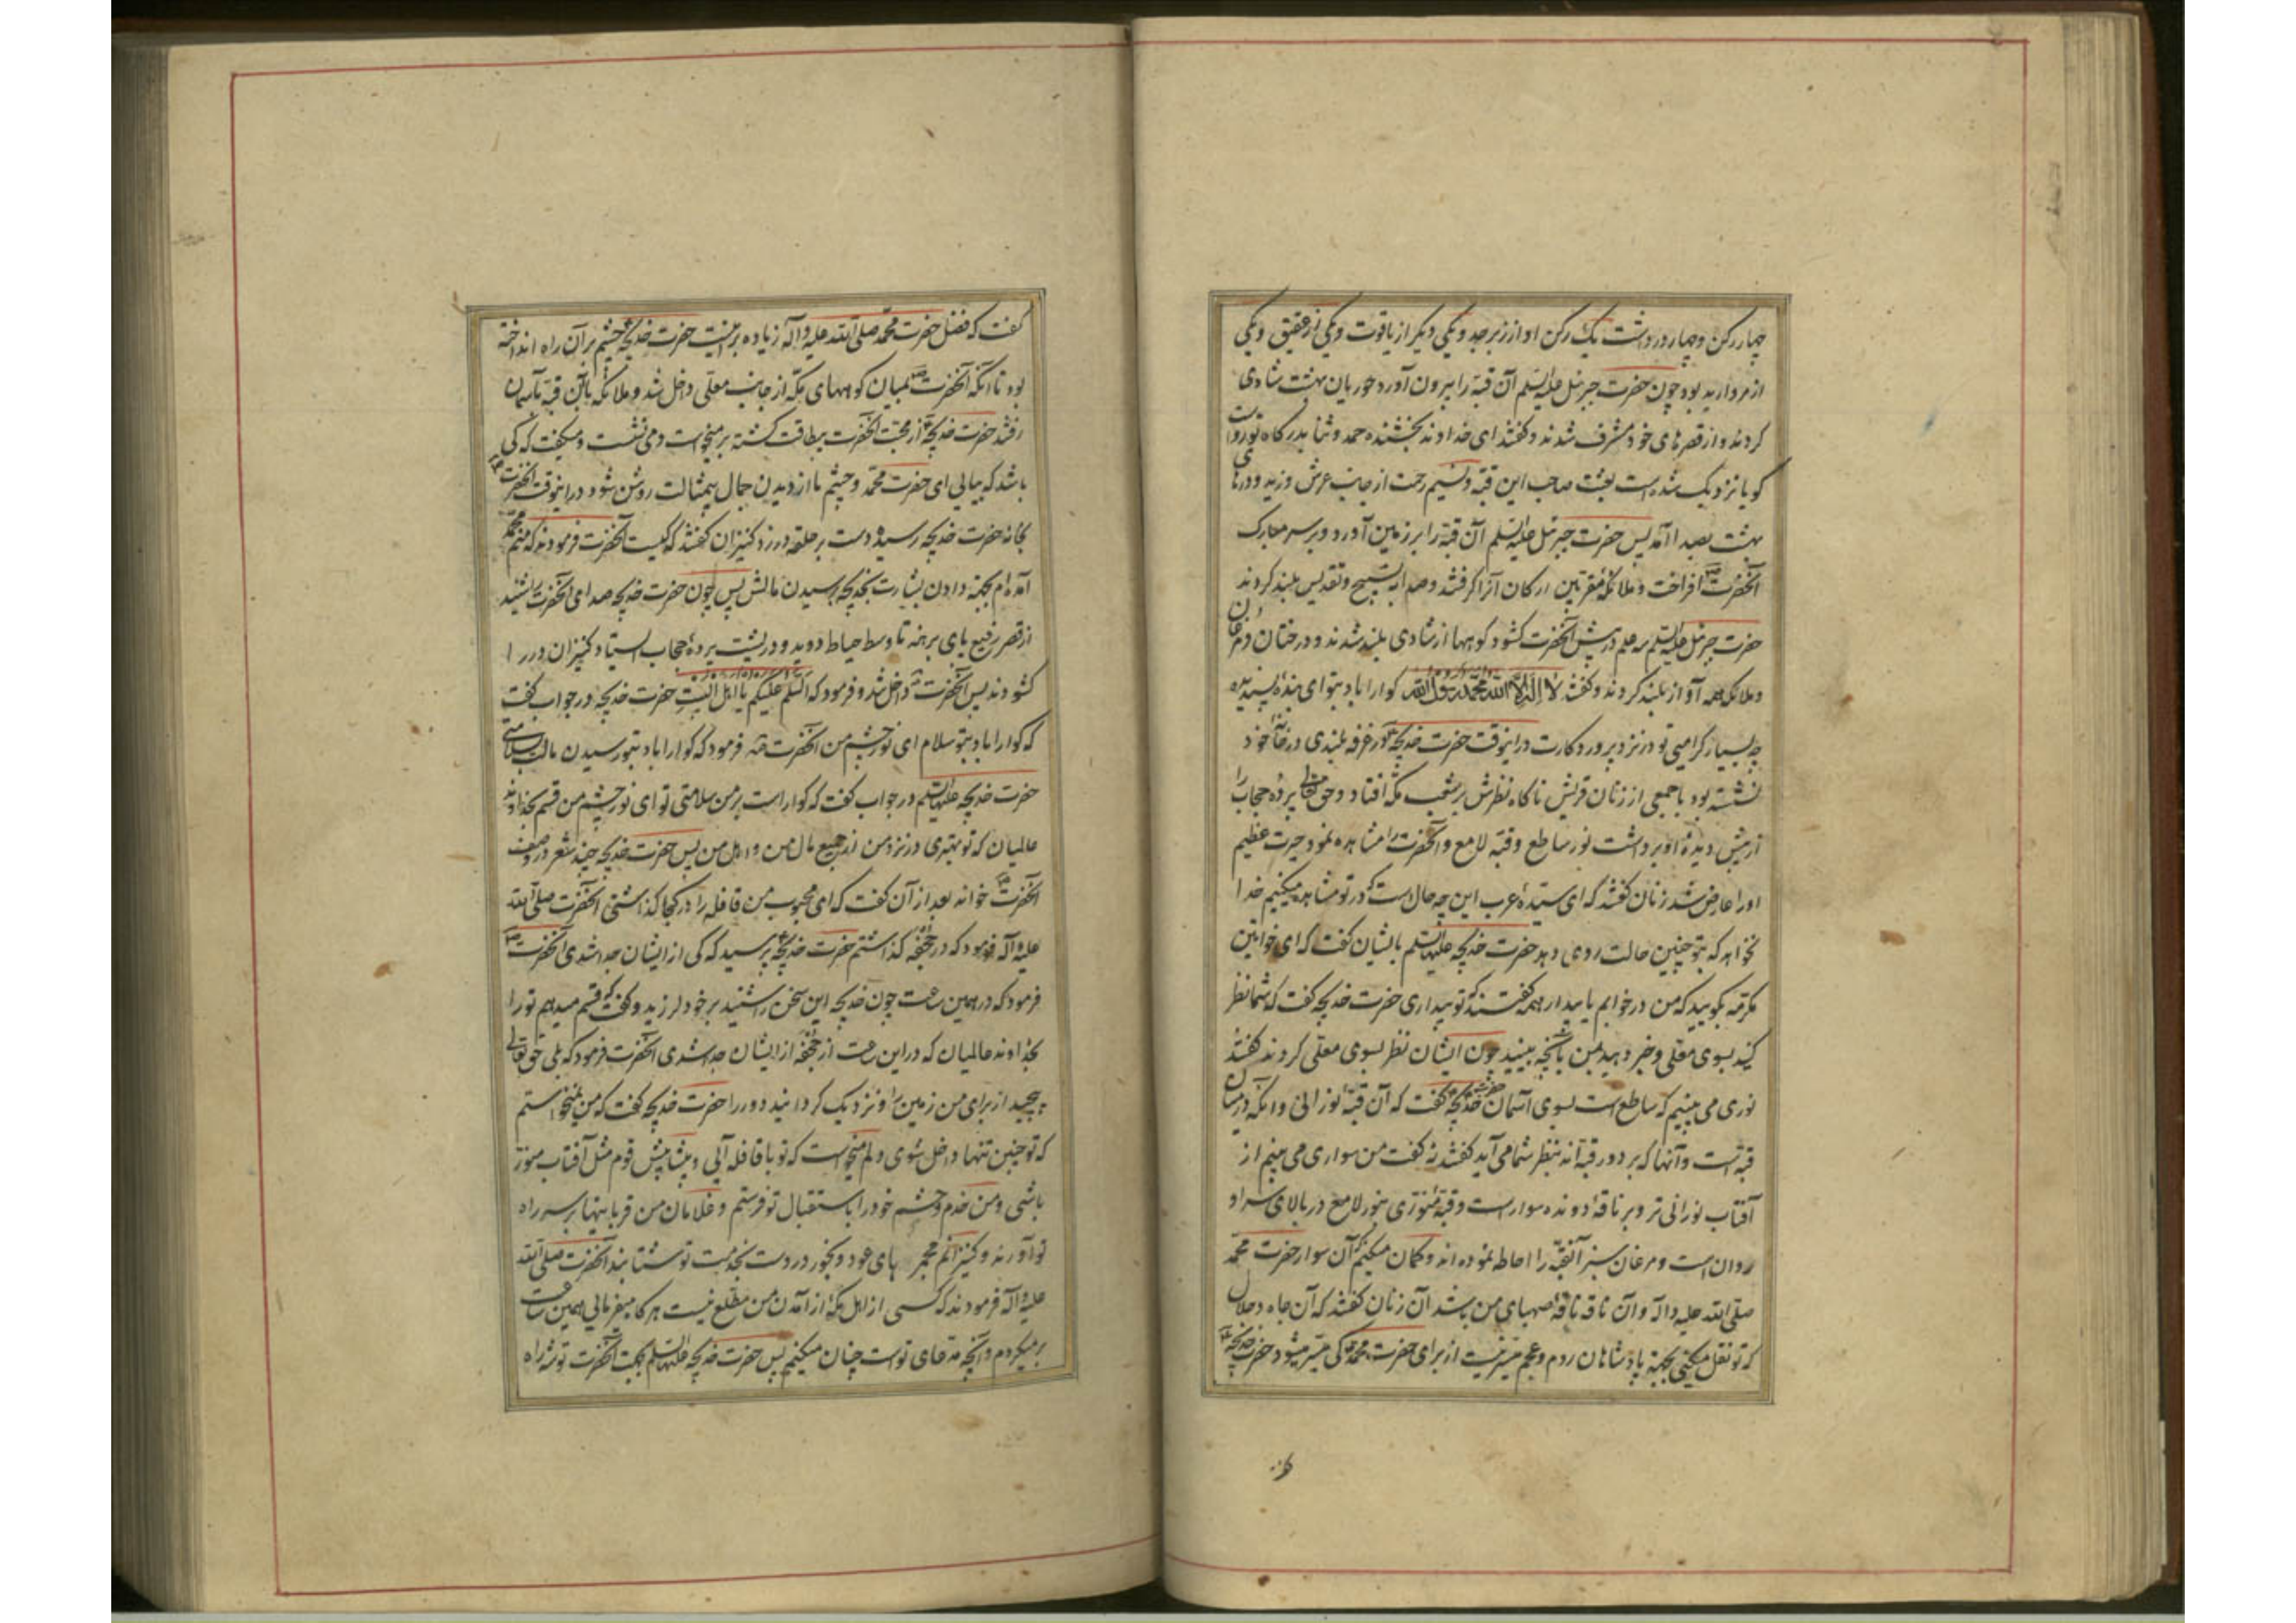 چهار رکن و چهار در داشت یک رکن او از زبرجد و یکی دیگر از یاقوت و یکی از عقیق و یکی
از مروارید بود چون حضرت جبرئیل علیه السلم آن قبه را بیرون آورد حوریان بهشت شادی
کردند و از قصرهای خود مشرف شدند و گفتند ای خداوند بخشنده حمد و ثنا بدرگاه تو رواست
گویا نزدیک شده است بعثت صاحب این قبه و نسیم رحمت از جانب عرش وزید و درهای
بهشت بصدا آمد پس حضرت جبرئیل علیه السلم آن قبه را بر زمین آورد و بر سر مبارک
آنحضرت افراخت و ملائکه مقربین ارکان آنرا گرفتند و صدا به تسبیح و تقدیس بلند کردند
حضرت جبرئیل علیه السلم سه علم در پیش آنحضرت گشود کوهها از شادی بلند شدند و درختان و مرغان
و ملائکه همه آواز بلند کردند و گفتند لا اله الا الله محمد رسول الله گوارا باد بتو ای بنده پسندیده
چه بسیار گرامیی تو در نزد پروردگارت در اینوقت حضرت خدیجه در غرفه بلندی در خانه خود
نشسته بود با جمعی از زنان قریش ناگاه نظرش بر شعب مکه افتاد و حق تعالی پرده حجاب را
از پیش دیده او برداشت نور ساطع و قبه لامع و آنحضرت را مشاهده نمود حیرت عظیم
او را عارض شد زنان گفتند که ای سیده عرب این چه حال است که در تو مشاهده میکنیم خدا
نخواهد که بتو چنین حالت روی دهد حضرت خدیجه علیها السلم بایشان گفت که ای خواتین
مکرمه بگویید که من در خوابم یا بیدار همه گفتند که تو بیداری حضرت خدیجه گفت که شما نظر
کنید بسوی معلی و خبر دهید بمن بآنچه ببینید چون ایشان نظر بسوی معلی کردند گفتند
نوری می بینیم که ساطع است بسوی آسمان حضرت خدیجه گفت که آن قبه نورانی و آنکه در میان
قبه است و آنها که بر دور قبه اند بنظر شما می آید گفتند نه گفت من سواری می بینم از
آفتاب نورانی تر و بر ناقه دونده سوار است و قبه منوری بنور لامع در بالای سر او
روان است و مرغان سبز آنقبه را احاطه نموده اند و گمان میکنم که آن سوار حضرت محمد
صلی الله علیه و آله و آن ناقه ناقه صهبای من باشد آن زنان گفتند که آن جاه و جلال
که تو نقل میکنی بجهة پادشاهان روم و عجم میسر نیست از برای حضرت محمد کی میسر میشود حضرت خدیجه
گفت که فضل حضرت محمد صلی الله علیه و آله زیاده بر اینست حضرت خدیجه چشم بر آن راه انداخته
بود تا آنکه آنحضرت بمیان کوههای مکه از جانب معلی داخل شد و ملائکه با آن قبه بآسمان
رفتند حضرت خدیجه از محبت آنحضرت بیطاقت گشته بر میخواست و می نشست و میگفت که کی
باشد که بیایی ای حضرت محمد و چشم ما از دیدن جمال بیمثالت روشن شود در اینوقت آنحضرت
بخانه حضرت خدیجه رسید و دست بر حلقه در زد کنیزان گفتند که کیست آنحضرت فرمودند که منم محمد
آمده ام بجهة دادن بشارت بخدیجه برسیدن مالش پس چون حضرت خدیجه صدای آنحضرت را شنید
از قصر رفیع پای برهنه تا وسط حیاط دوید و در پشت پرده حجاب ایستاد کنیزان در را
گشودند پس آنحضرت داخل شد و فرمود که السلم علیکم یا اهل البیت حضرت خدیجه در جواب گفت
که گوارا باد بتو سلام ای نور چشم من آنحضرت فرمود که گوارا باد بتو رسیدن مالت بسلامتی
حضرت خدیجه علیها السلم در جواب گفت که گوارا است بر من سلامتی تو ای نور چشم من قسم بخداوند
عالمیان که تو بهتری در نزد من از جمیع مال من و اهل من پس حضرت خدیجه چند شعر در وصف
آنحضرت خواند بعد از آن گفت که ای محبوب من قافله را در کجا گذاشتی آنحضرت صلی الله
علیه و آله فرمود که در جحفه گذاشتم حضرت خدیجه پرسید که کی از ایشان جدا شدی آنحضرت
فرمود که در همین ساعت چون خدیجه این سخن را شنید بر خود لرزید و گفت که قسم میدهم تو را
بخداوند عالمیان که در این ساعت از جحفه از ایشان جدا شدی آنحضرت فرمود که بلی حق تعالی
پیچید از برای من زمین را و نزدیک گردانید دور را حضرت خدیجه گفت که من نمیخواستم
که تو چنین تنها داخل شوی دلم میخواست که تو با قافله آئی و پیشاپیش قوم مثل آفتاب منور
باشی و من خدم و حشم خود را باستقبال تو فرستم و غلامان من قربانیها بر سر راه
تو آورند و کنیزانم مجمرهای عود و بخور در دست بخدمت تو شتابند آنحضرت صلی الله
علیه و آله فرمودند که کسی از اهل مکه از آمدن من مطلع نیست هر گاه میفرمائی همین ساعت
بر میگردم و آنچه مدعای تو است چنان میکنیم پس حضرت خدیجه علیها السلم بجهت آنحضرت توشه راه